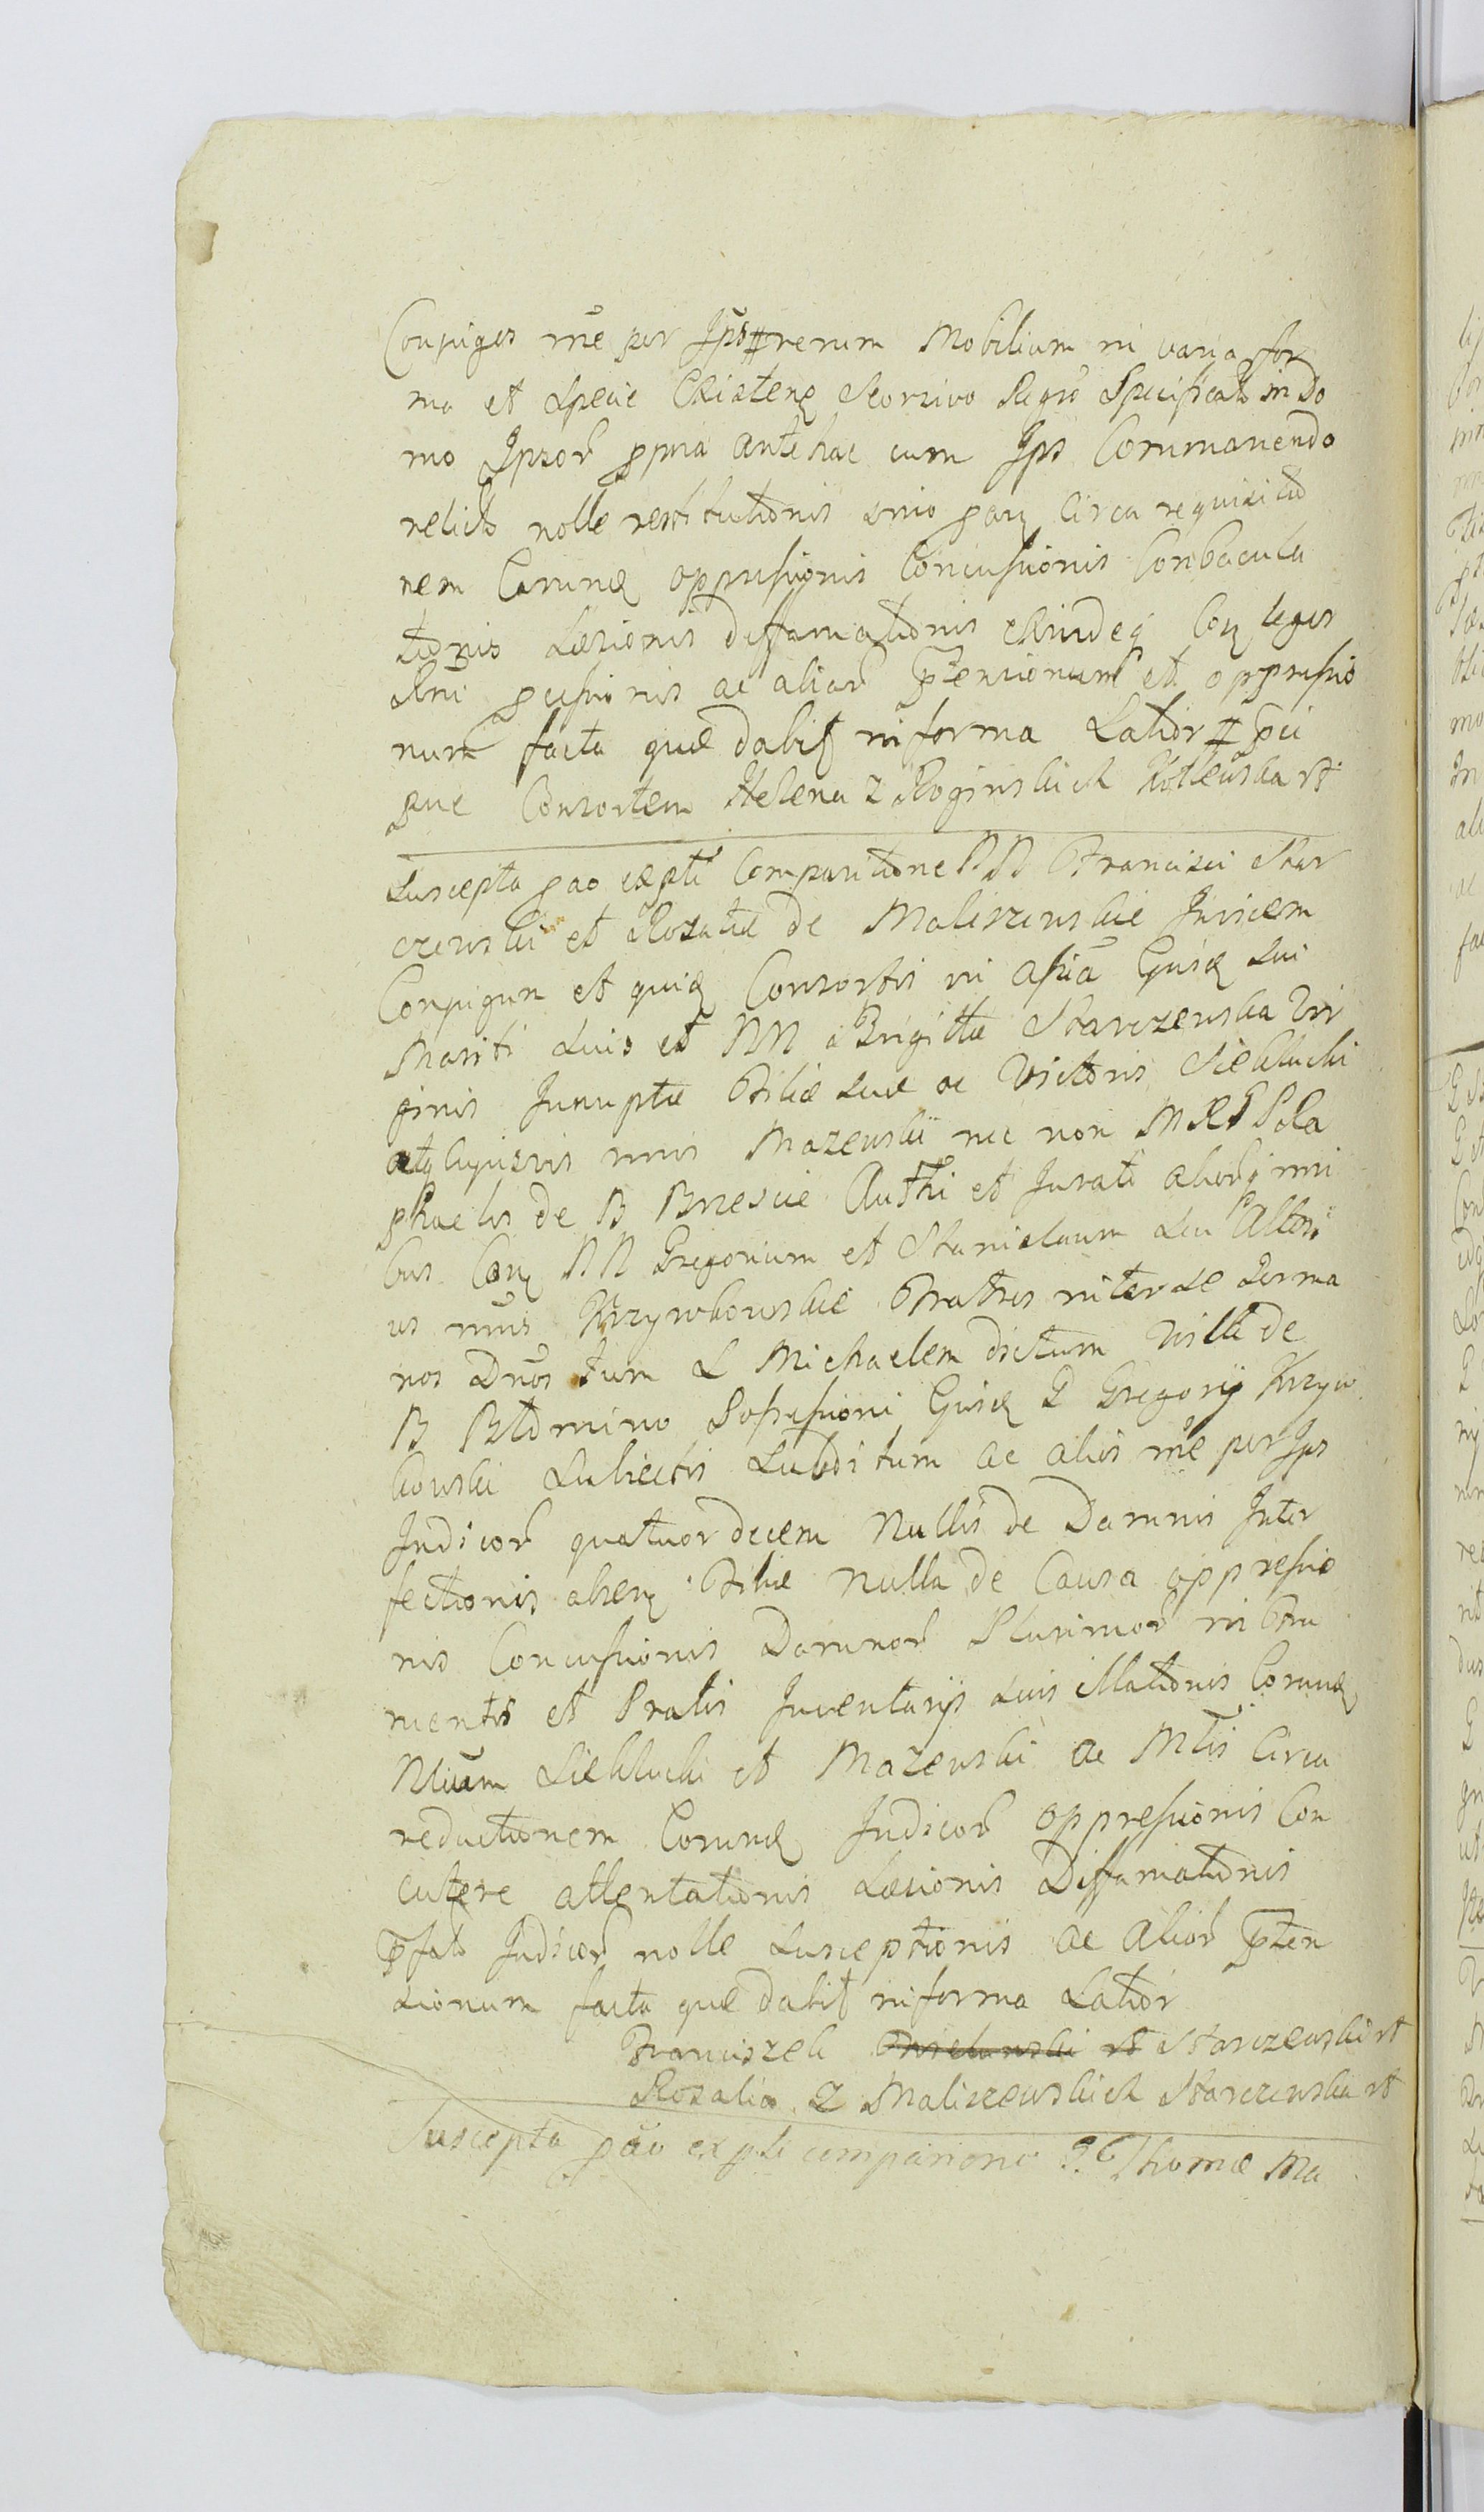 Conjuges mẽ per Ips rerum Mobilium in varia for
ma et Specie Existenq Seorsivo Regrõ Specificato in Do
mo Ipsor ppria antehac cum Ips Commanendo
relicto nolle restitutionis imo pary Circa requisitio
nem Earunq oppressionis Concussionis Conbacula
tionis Læsionis diffamationis exindeq Cony leges
Rni pcussionis ac alior ptensionum et oppressio
num facta quæ dabit in forma Latior pci
sue Consortem Helena z Roginskich Kotlewska rt
Suscepta pao expti Comparitione NN Francisci Star
czewski et Rosaliæ de Maliszewskie Invicem
Conjugum et quid Consortis in assia Ejusq Sui
Mariti Suis et NN a Brigittæ Starczewska Vir
ginis Innuptæ Filiæ Suæ ac Victoris Siekluchi
atq cujusvis mis Mazewskii nec non M R Ra
phaelis de B Brzescie Authi et Jurati aliorq mi
bus Cony NN Gregorium et Stanislaum Seu Alteri
us mis Krzywkowskie Fratres inter se Germa
nos Dnos tum L Michaelem dictum Villæ de
B Possessioni Ejusq G Gregorij Krzyw
kowski Subiectis Subditum ac alios mẽ per Ips
Indicor quatuordecem Nullis de Damnis Inter
fectionis alterq Filiæ nulla de Causa oppressio
nis Concussionis Damnor Plurimor in Fru
mentis et Pratis Inventarijs suis illationis Eorunq
NNum Siekluchi et Mazewski ac Mtis Circa
reductionem Eorunq Indicor oppressionis Con
cutere attentationis Læsionis Diffamationis
pfato Indicor nolle Susceptionis ac alior pten
sionum facta quæ dabit in forma Latior
Franciszek Starczewski rt
Rozalia z Maliszewskich Starczewska rt
Suscepta pao expti comparitione G. Thomæ Ma